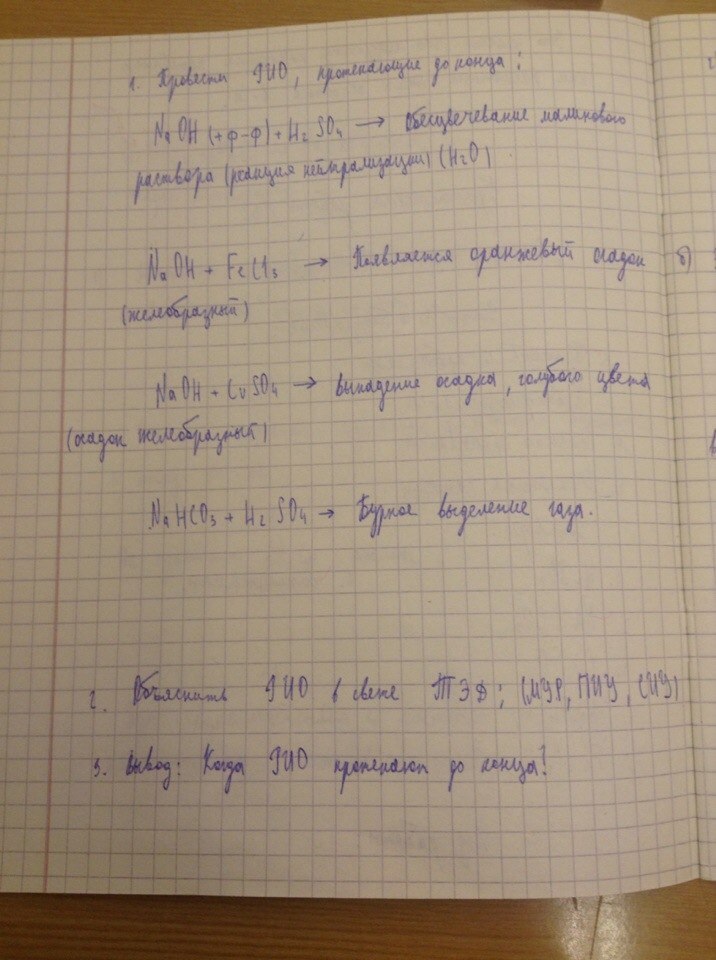 1. Провести РИО, протекающие до конца:
NaOH (+ф-ф) + H₂SO₄ → Обесцвечевание малинового
раствора (реакция нейтрализации) (H₂O)
NaOH + FeCl₃ → Появляется оранжевый осадок
(желеобразный)
б)
NaOH + CuSO₄ → выпадение осадка, голубого цвета
(осадок желеобразный)
NaHCO₃ + H₂SO₄ → Бурное выделение газа.
2. Объяснить РИО в свете ТЭД; (МУР, ПИУ, СИУ)
3. Вывод: Когда РИО протекают до конца?